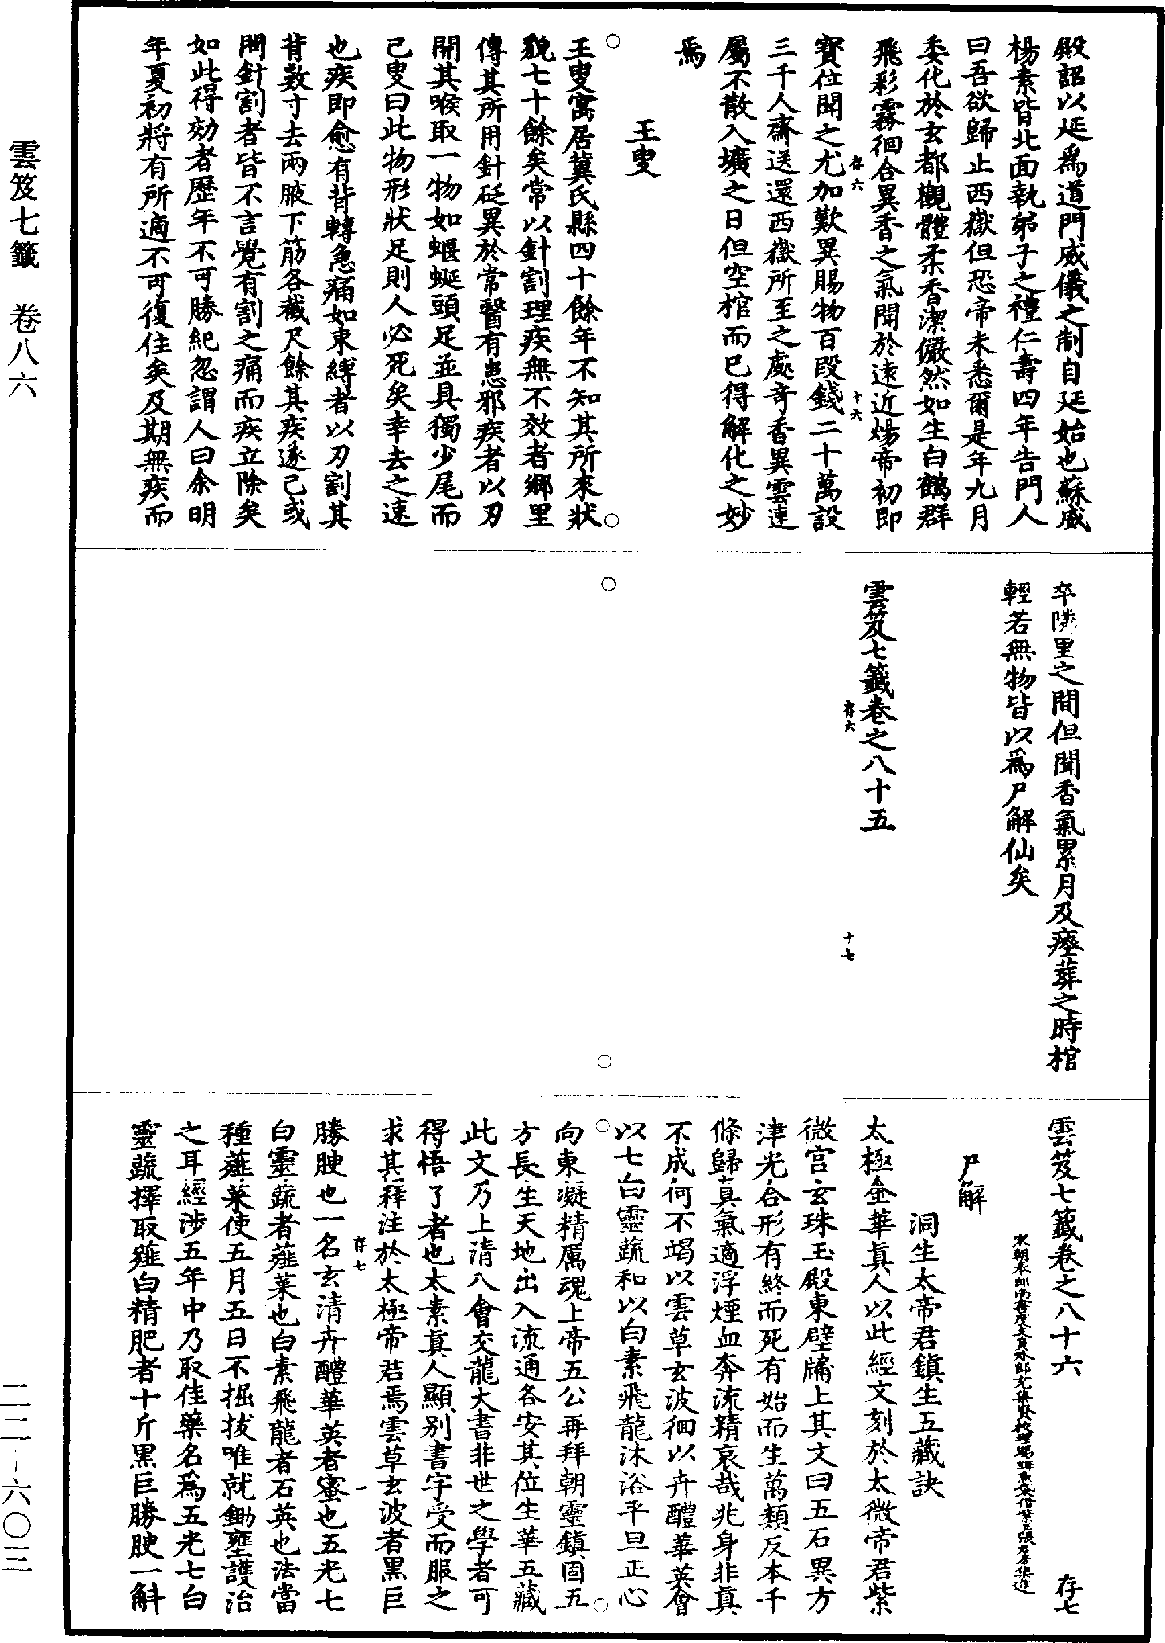 殿詔以延為道門威儀之制自延始也蘇威
楊素皆北面執弟子之禮仁壽四年告門人
曰吾欲歸止西嶽但恐帝未悉爾是年九月
委化於玄都觀體柔香潔儼然如生白鶴群
飛彩霧徊合異香之氣聞於遠近煬帝初即
存六 十六
寶位聞之尤加歎異賜物百段錢二十萬設
三千人齋送還西嶽所至之處奇香異雲連
屬不散入壙之日但空棺而已得解化之妙
焉
王叟
王叟寓居冀氏縣四十餘年不知其所來狀
貌七十餘矣常以針割理疾無不效者鄉里
傳其所用針砭異於常醫有患邪疾者以刃
開其喉取一物如蝘蜒頭足並具獨少尾而
已叟曰此物形狀足則人必死矣幸去之速
也疾即愈有背轉急痛如束縛者以刃割其
背數寸去兩腋下筋各截尺餘其疾遂已或
問針割者皆不言覺有割之痛而疾立除矣
如此得効者歷年不可勝紀忽謂人曰余明
年夏初將有所適不可復住矣及期無疾而
卒隣里之間但聞香氣累月及瘞葬之時棺
輕若無物皆以為尸解仙矣
雲笈七籤卷之八十五
存六 十七
雲笈七籤卷之八十六 存七
尸解
洞生太帝君鎮生五藏訣
太極金華真人以此經文刻於太微帝君紫
微宮玄珠玉殿東壁牖上其文曰五石異方
津光合形有終而死有始而生萬類反本千
條歸真氣適浮煙血奔流精哀哉兆身非真
不成何不竭以雲草玄波徊以卉醴華英會
以七白靈蔬和以白素飛龍沐浴平旦正心
向東凝精厲魂上帝五公再拜朝靈鎮固五
方長生天地出入流通各安其位生華五藏
此文乃上清八會交龍大書非世之學者可
得悟了者也太素真人顯別書字受而服之
求其釋注於太極帝君焉雲草玄波者黑巨
存七 一
勝腴也一名玄清卉醴華英者蜜也五光七
白靈蔬者薤菜也白素飛龍者石英也法當
種薤菜使五月五日不掘拔唯就鋤壅護治
之耳經涉五年中乃取佳藥名為五光七白
靈蔬擇取薤白精肥者十斤黑巨勝腴一斛
雲笈七籤 卷八六
二二-六〇三